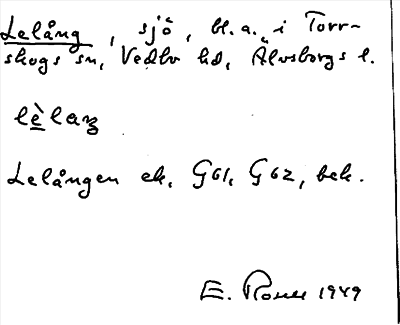 Lelång, sjö, bl.a. i Torr-
skogs sn, Vedbo hd, Älvsborgs l.
lè̱laŋ
Lelången ek. G61, G62, bek.
E. 1949